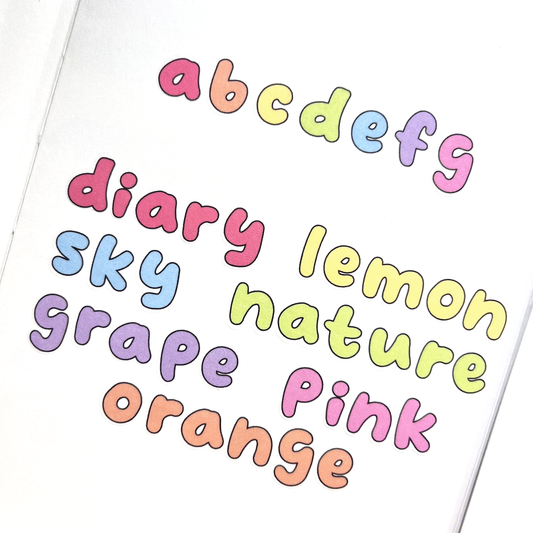 abcdefg
diary lemon
sky nature
grape pink
orange